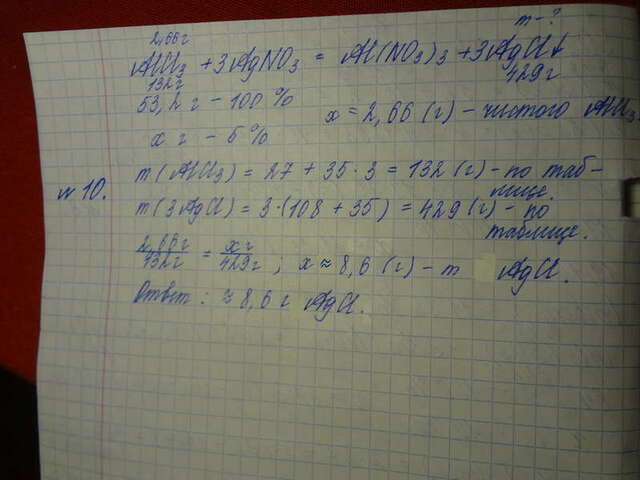 m - ?
2,66 г
AlCl₃ + 3AgNO₃ = Al(NO₃)₃ + 3AgCl↓
132 г 429 г
53,2 г - 100 %
x = 2,66 (г) - чистого AlCl₃.
x г - 5 %
№ 10.
m (AlCl₃) = 27 + 35 · 3 = 132 (г) - по таб-
лице.
m (3AgCl) = 3 · (108 + 35) = 429 (г) - по
таблице.
2,66 г / 132 г = x г / 429 г ; x ≈ 8,6 (г) - m AgCl.
Ответ : ≈ 8,6 г AgCl.